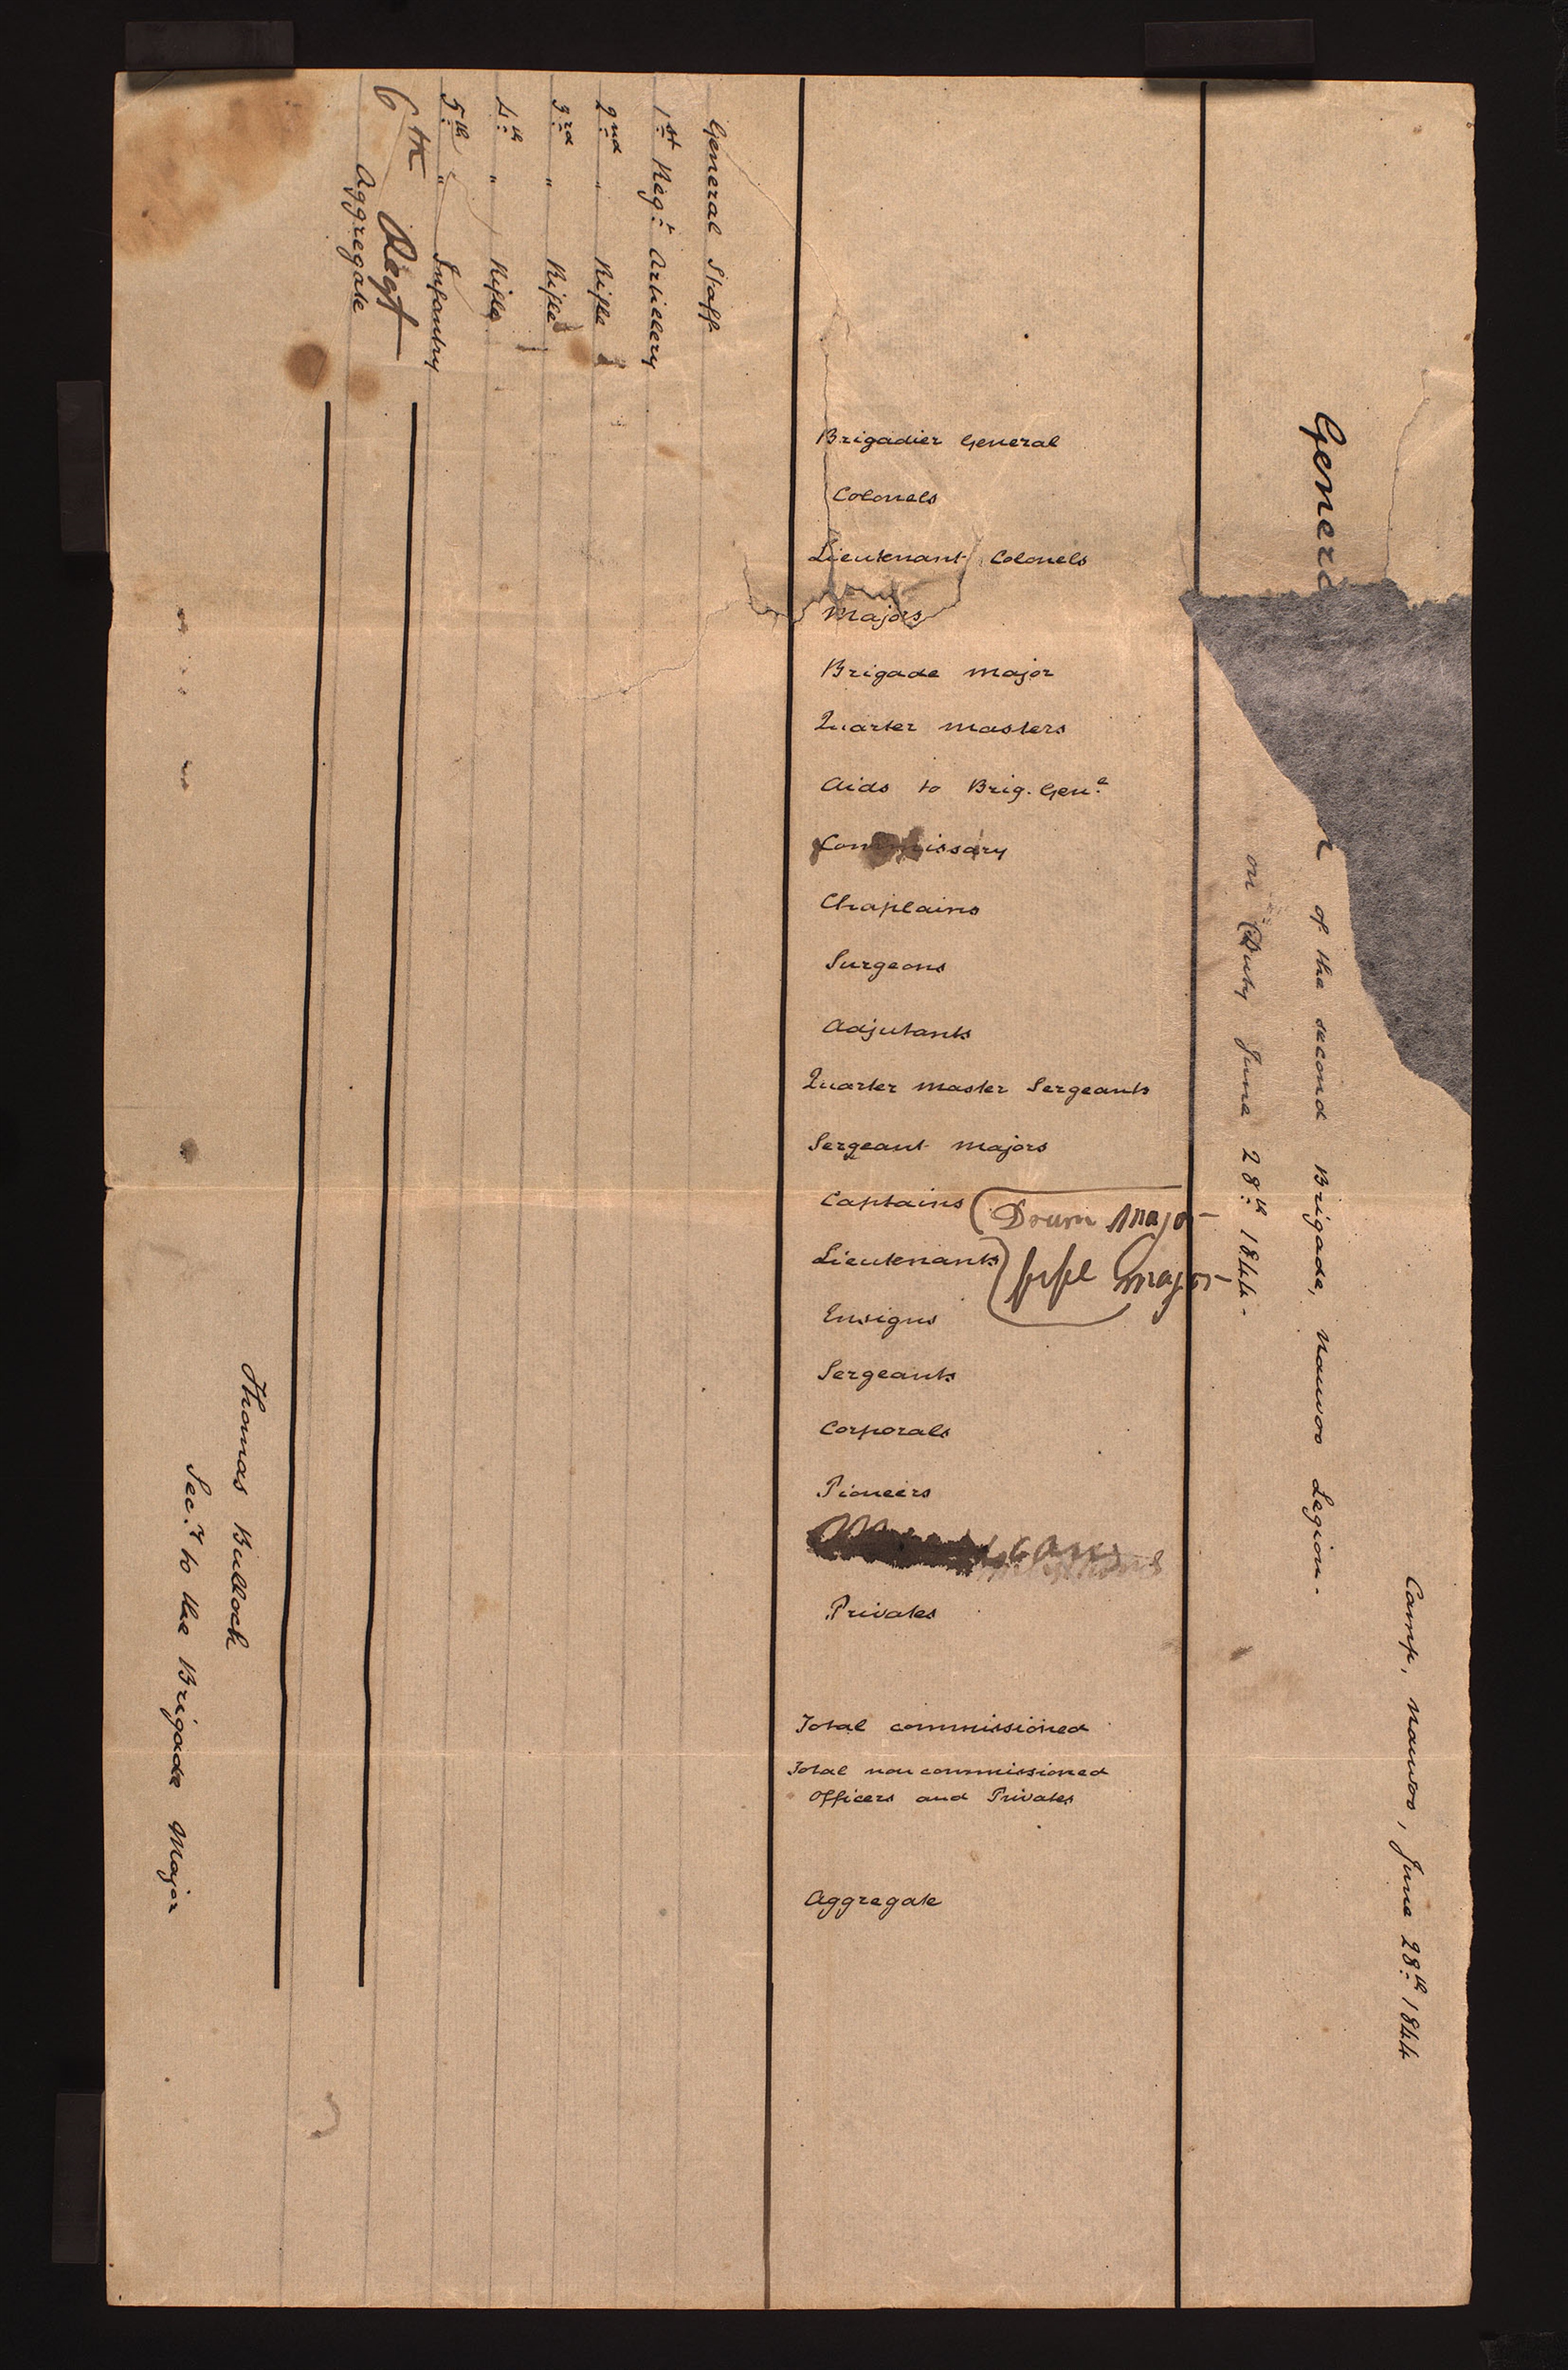 Camp, Nauvoo, June 28th. 1844
General
of the second Brigade, Nauvoo Legion.
on Duty June 28th. 1844.
Brigadier General
Colonels
Lieutenant Colonels
Majors
Brigade Major
Quarter Masters
Aids to Brig. Genl.
Commissary
Chaplains
Surgeons
Adjutants
Quarter Master Sergeants
Sergeant Majors
Captains
Drum Major
Lieutenants
fife Major
Ensigns
Sergeants
Corporals
Pioneers
Privates
Total commissioned
Total non commissioned
Officers and Privates
Aggregate
General Staff
1st. Regt. Artillery
2nd " Rifle
3rd " Rifle
4th. " Rifle
5th. " Infantry
6th Regt
Aggregate
Thomas Bullock
Secy. to the Brigade Major